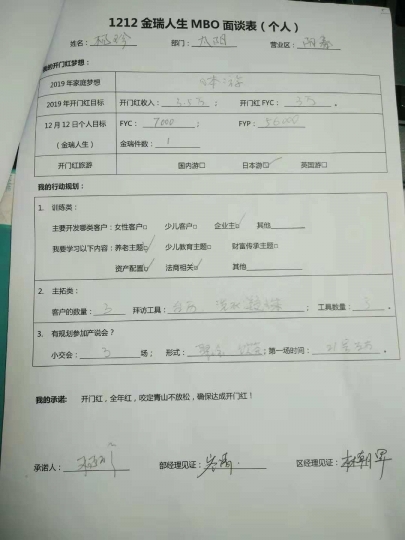 1212 金瑞人生 MBO 面谈表（个人）
姓名： 部门： 营业区：
我的开门红梦想：
2019 年家庭梦想
2019 年开门红目标 开门红收入： 3.5万 ； 开门红 FYC： 3万 。
12 月 12 日个人目标 FYC： 7000 ； FYP：
（金瑞人生） 金瑞件数： 1
开门红旅游 国内游□ 日本游□✓ 英国游□
我的行动规划：
1. 训练类：
主要开发哪类客户：女性客户□ 少儿客户□ 企业主□✓ 其他
我要学习以下内容：养老主题□✓ 少儿教育主题□ 财富传承主题□
资产配置□✓ 法商相关□✓ 其他
2. 主拓类：
客户的数量： 5 拜访工具： ；工具数量： 3 。
3. 有规划参加产说会？
小交会： 3 场； 形式： ；第一场时间：
我的承诺： 开门红，全年红，咬定青山不放松，确保达成开门红！
承诺人： 部经理见证： 区经理见证：